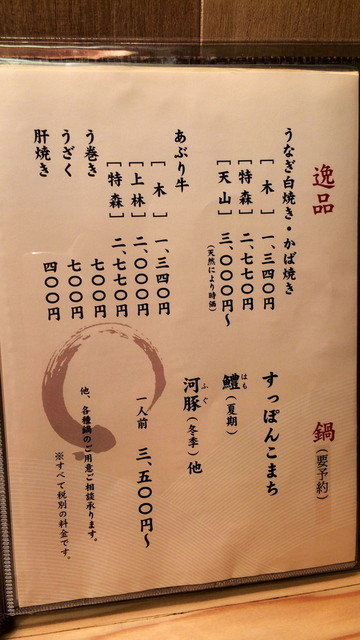 逸品
うなぎ白焼き・かば焼き
［木］ 一、三四〇円
［特森］ 二、七七〇円
［天山］ 三、〇〇〇円～
（天然により時価）
あぶり牛
［木］ 一、三四〇円
［上林］ 二、〇〇〇円
［特森］ 二、七七〇円
う巻き 七〇〇円
うざく 七〇〇円
肝焼き 四〇〇円
鍋（要予約）
すっぽんこまち
鱧（夏期）
はも
河豚（冬季）他
ふぐ
一人前 三、五〇〇円～
他、各種鍋のご用意ご相談承ります。
※すべて税別の料金です。